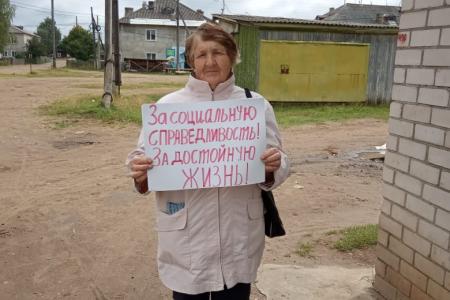 За социальную
справедливость!
За достойную
жизнь!